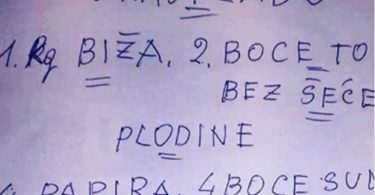 1. Kg BIŽA, 2. BOCE TO
BEZ ŠEĆE
PLODINE
PAPIRA, 4 BOCE SUN